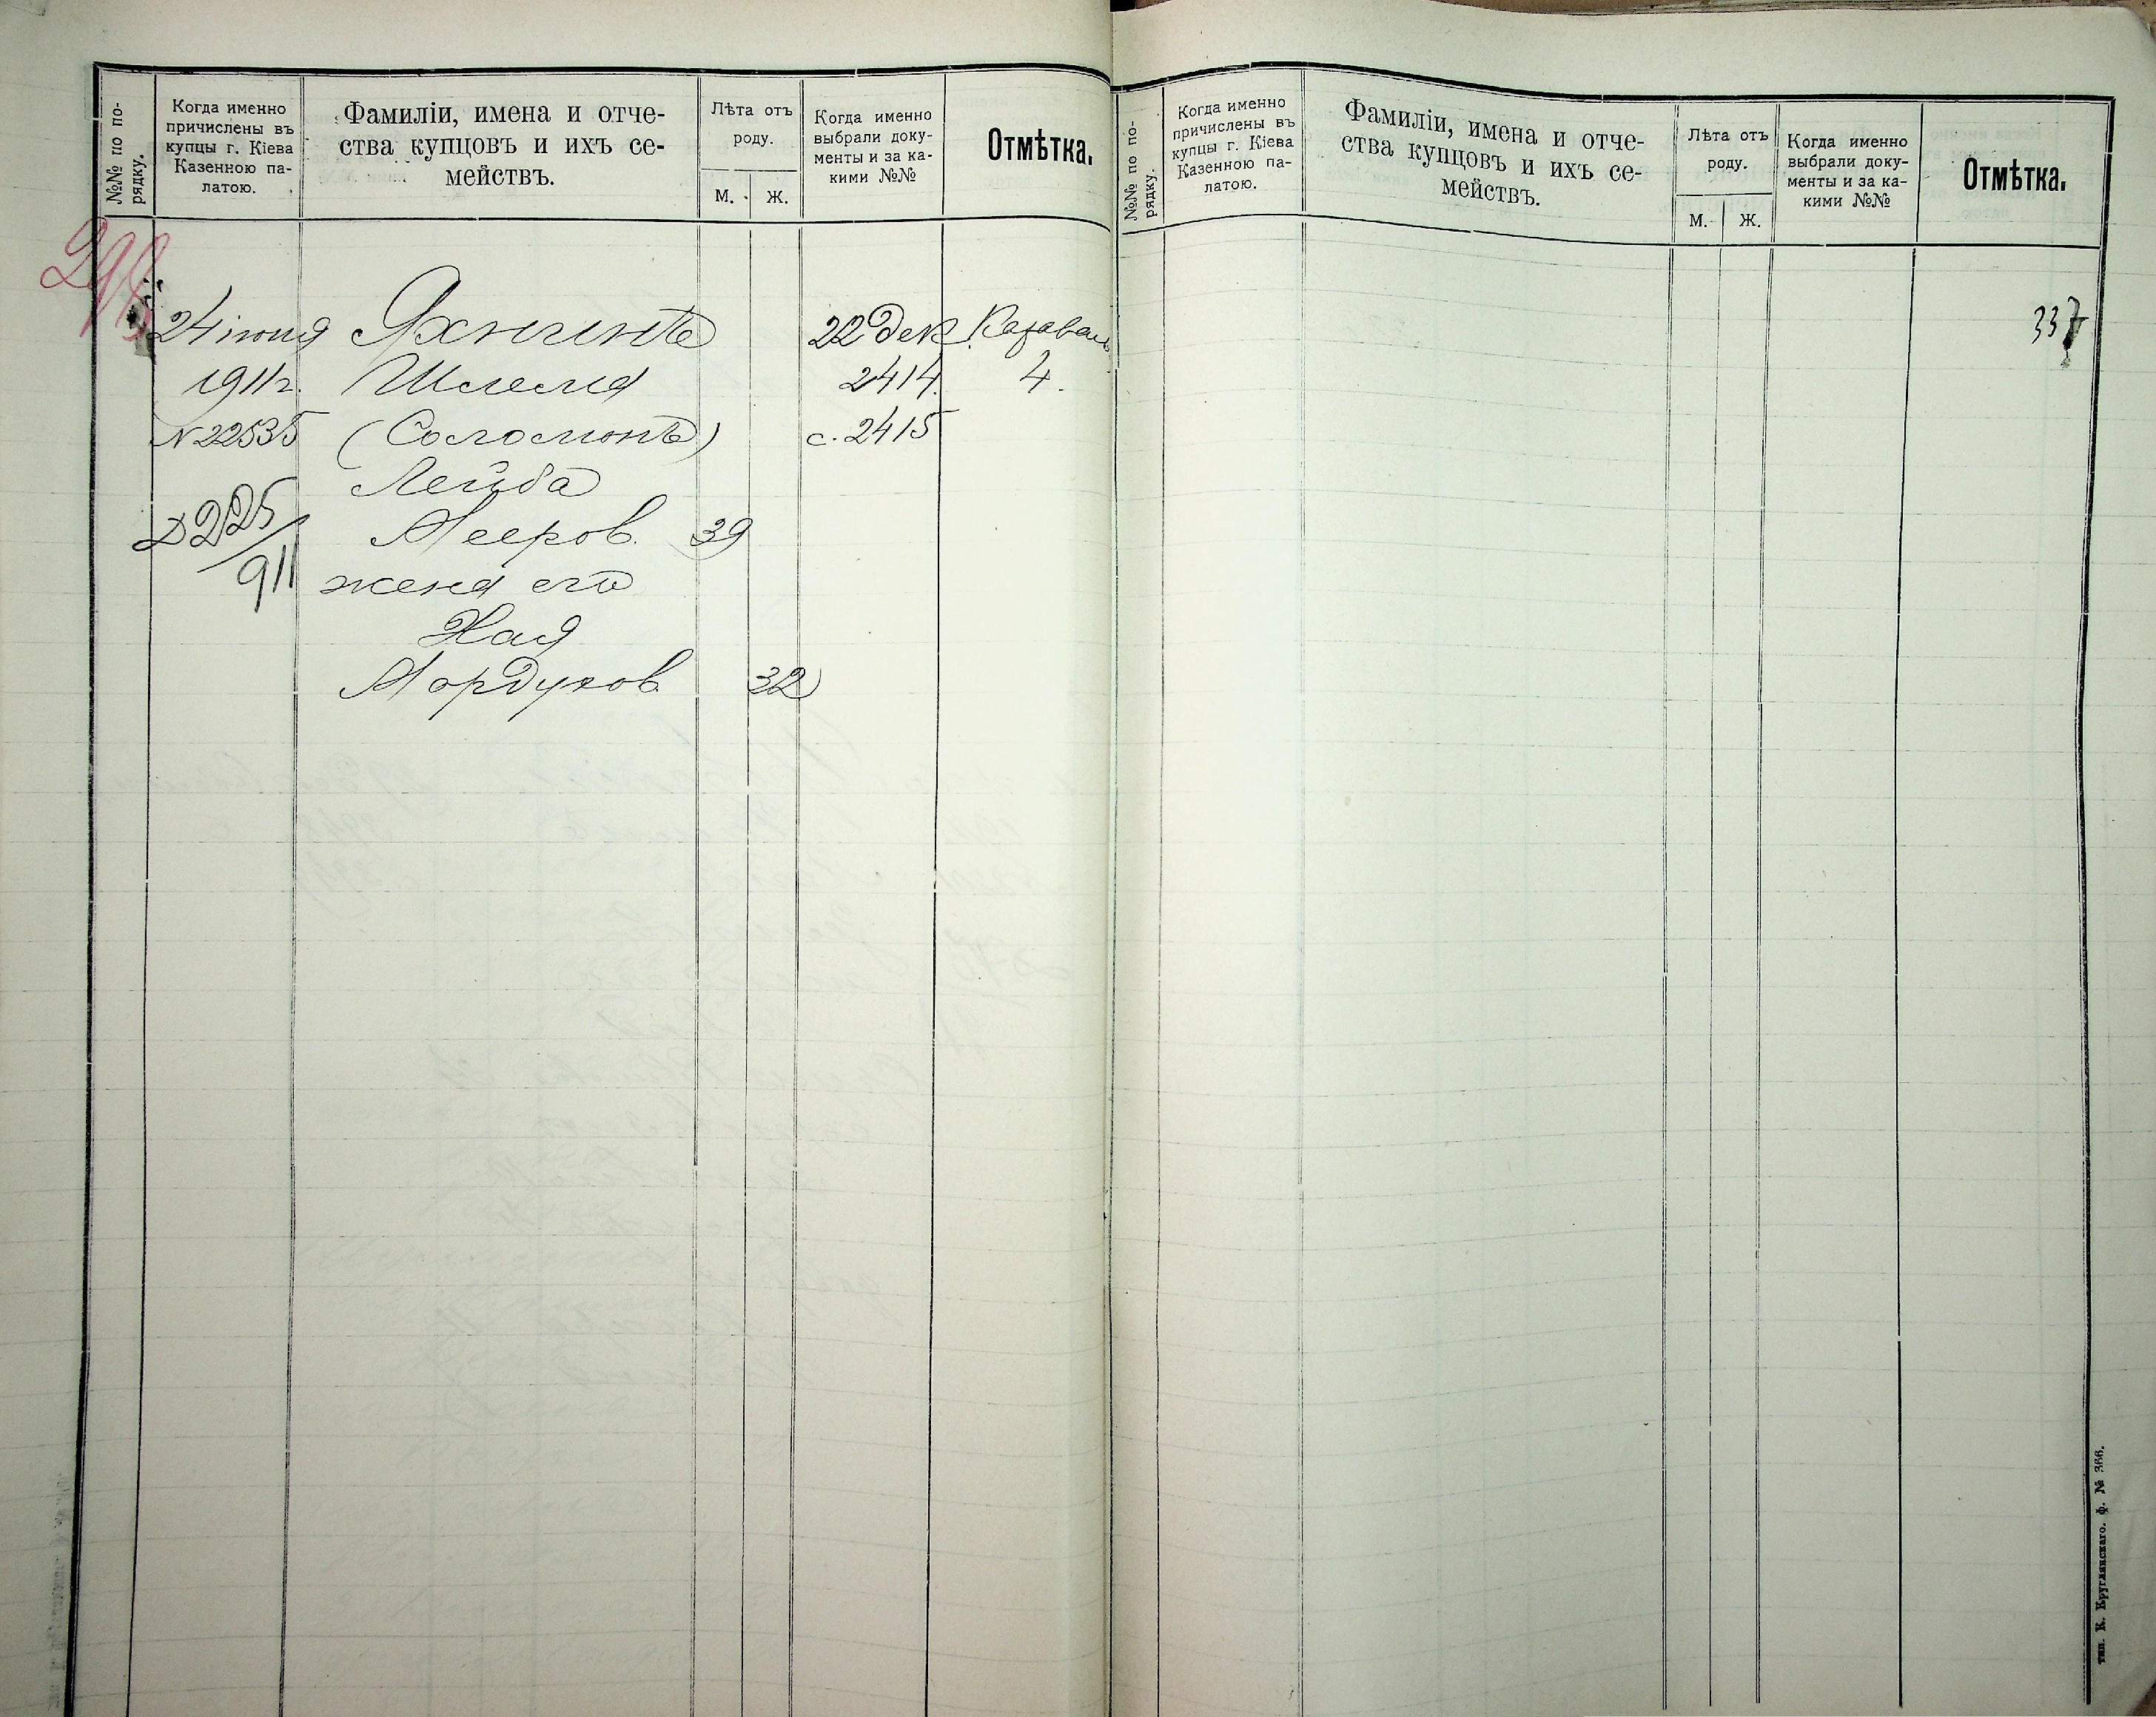 №№ по по-
рядку.
Когда именно
причислены въ
купцы г. Кіева
Казенною па-
латою.
Фамиліи, имена и отче-
ства купцовъ и ихъ се-
мействъ.
Лѣта отъ
роду.
М.
Ж.
Когда именно
выбрали доку-
менты и за ка-
кими №№
Отмѣтка.
24 іюня
1911 г.
№ 22535
Д 225/911
Яхнинъ
Шлема
(Соломонъ)
Лейба
Мееров. 39
жена его
Хая
Мордухов 32
22 дек.
2414.
с. 2415
4.
№№ по по-
рядку.
Когда именно
причислены въ
купцы г. Кіева
Казенною па-
латою.
Фамиліи, имена и отче-
ства купцовъ и ихъ се-
мействъ.
Лѣта отъ
роду.
М.
Ж.
Когда именно
выбрали доку-
менты и за ка-
кими №№
Отмѣтка.
337
тип. К. Круглянскаго. ф. № 366.